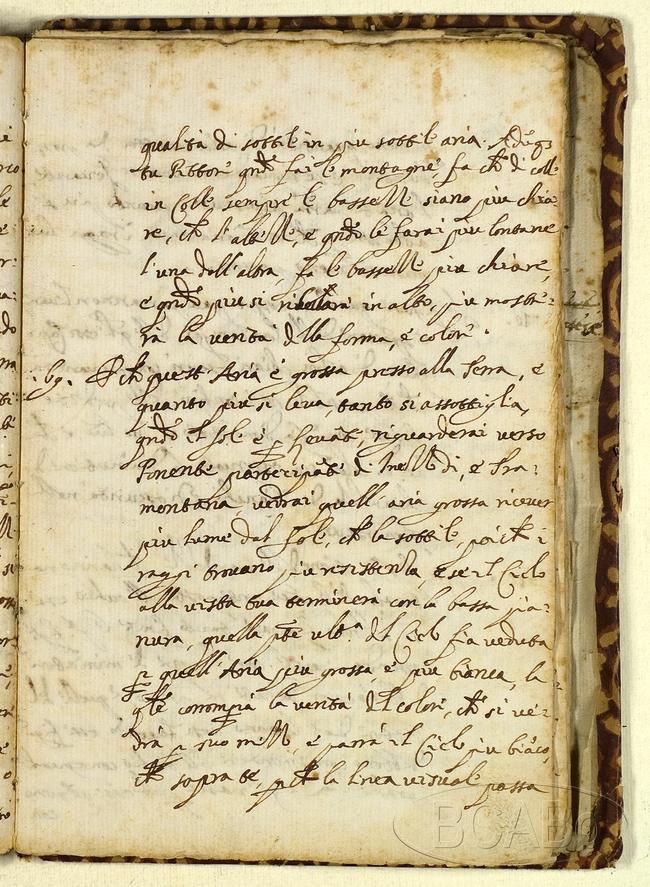 qualità di sottile in piu sottile aria. Adūq3
tu Pittore qñdo fai le montagne, fa ch̃ di colle
in Colle sempre le bassezze siano piu chia
re, ch̃ l'altezze, e qñdo le farai piu lontane
l'una dall'altra, fa le bassezze piu chiare,
e qñdo piu si in alto, piu mostre:
rà la verità d̃lla forma, e colore.
.69. P̃ch̃ quest'Aria è grossa presso alla Terra, e
quanto piu si leva, tanto si assottiglia,
qñdo il sole è p̱ Levãte, riguarderai verso
Ponente partecipãte di Mezzodi, e Tra:
montana, vedrai quell'aria grossa ricever
piu lume dal sole, ch̃ la sottile, poich̃ i
raggi trovano piu resistenza, E se il Cielo
alla vista tua terminerà con la bassa pia:
nura, quella p̃te ult.a d̃l Cielo fia veduta
p̱ quell'Aria piu grossa, e piu bianca, la:
q̃le corromp̱à la verità d̃l colore, ch̃ si ve:
drà p̱ suo mezzo, e parrà il Cielo piu biãco,
ch̃ sopra te, p̱ch̃ la linea visuale passa
BCABo